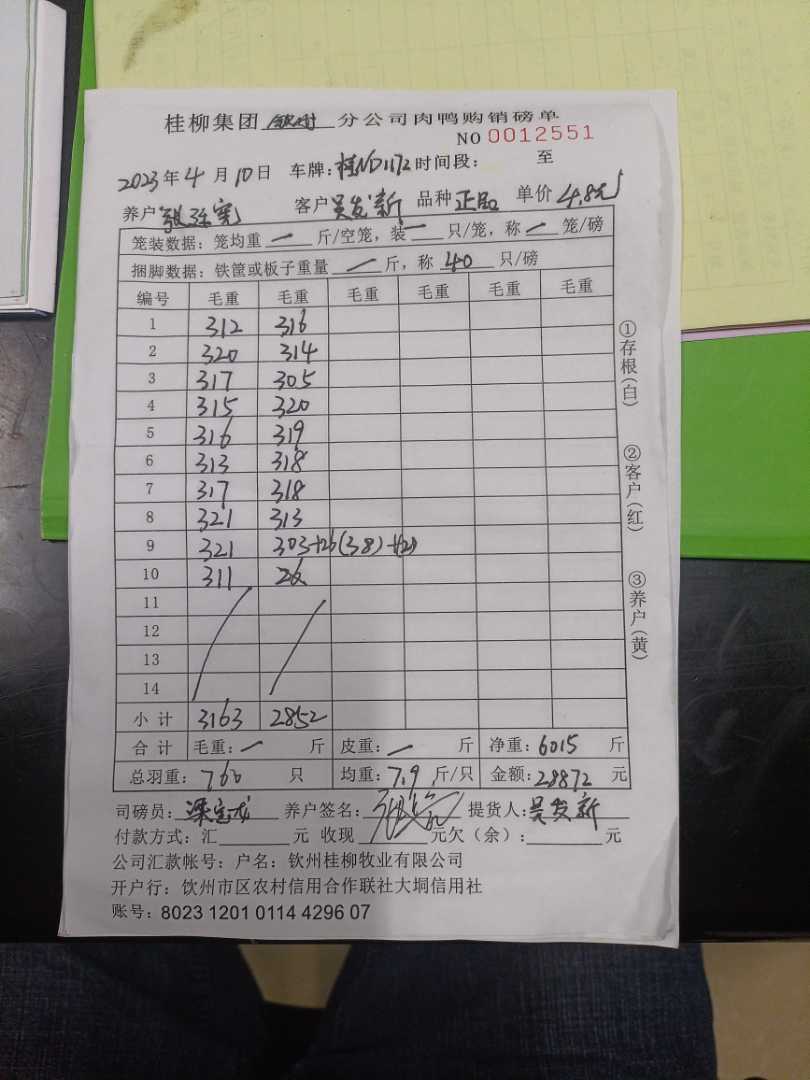 桂柳集团 钦州 分公司肉鸭购销磅单
NO 0012551
2023年4月10日 车牌:桂ND1172 时间段: 至
养户 客户 吴发新 品种 正品 单价 4.8元
笼装数据:笼均重 一 斤/空笼,装 一 只/笼,称 一 笼/磅
捆脚数据:铁筐或板子重量 一 斤,称 40 只/磅
编号 毛重 毛重 毛重 毛重 毛重 毛重
1 312 316
2 320 314
3 317 305
4 315 320
5 316 319
6 313 318
7 317 318
8 321 313
9 321 303+26(38)
10 311 26
11
12
13
14
小计 3163 2852
合计 毛重:一 斤 皮重:一 斤 净重:6015 斤
总羽重:760 只 均重:7.9 斤/只 金额:28872 元
司磅员: 养户签名: 提货人:吴发新
付款方式:汇 元 收现 元欠(余): 元
公司汇款帐号:户名:钦州桂柳牧业有限公司
开户行:钦州市区农村信用合作联社大垌信用社
账号:8023 1201 0114 4296 07
①存根(白)
②客户(红)
③养户(黄)